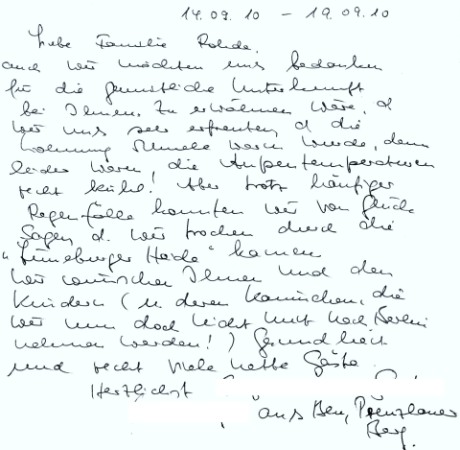 14.09.10 – 19.09.10
Liebe Familie Rohde.
auch wir möchten uns bedanken
für die gemütliche Unterkunft
bei Ihnen. Zu erwähnen wäre, d
wir uns sehr erfreuten, d die
Wohnung schnell warm wurde, denn
leider waren, die Außentemperaturen
recht kühl. Aber trotz häufiger
Regenfälle konnten wir von Glück
sagen d. wir trocken durch die
"Lüneburger Heide" kamen
wir wünschen Ihnen und den
Kindern (u deren Kaninchen, die
wir nun doch nicht mit nach Berlin
nehmen werden!) Gesundheit
und recht viele nette Gäste.
Herzlichst
aus Berlin, Prenzlauer
Berg.